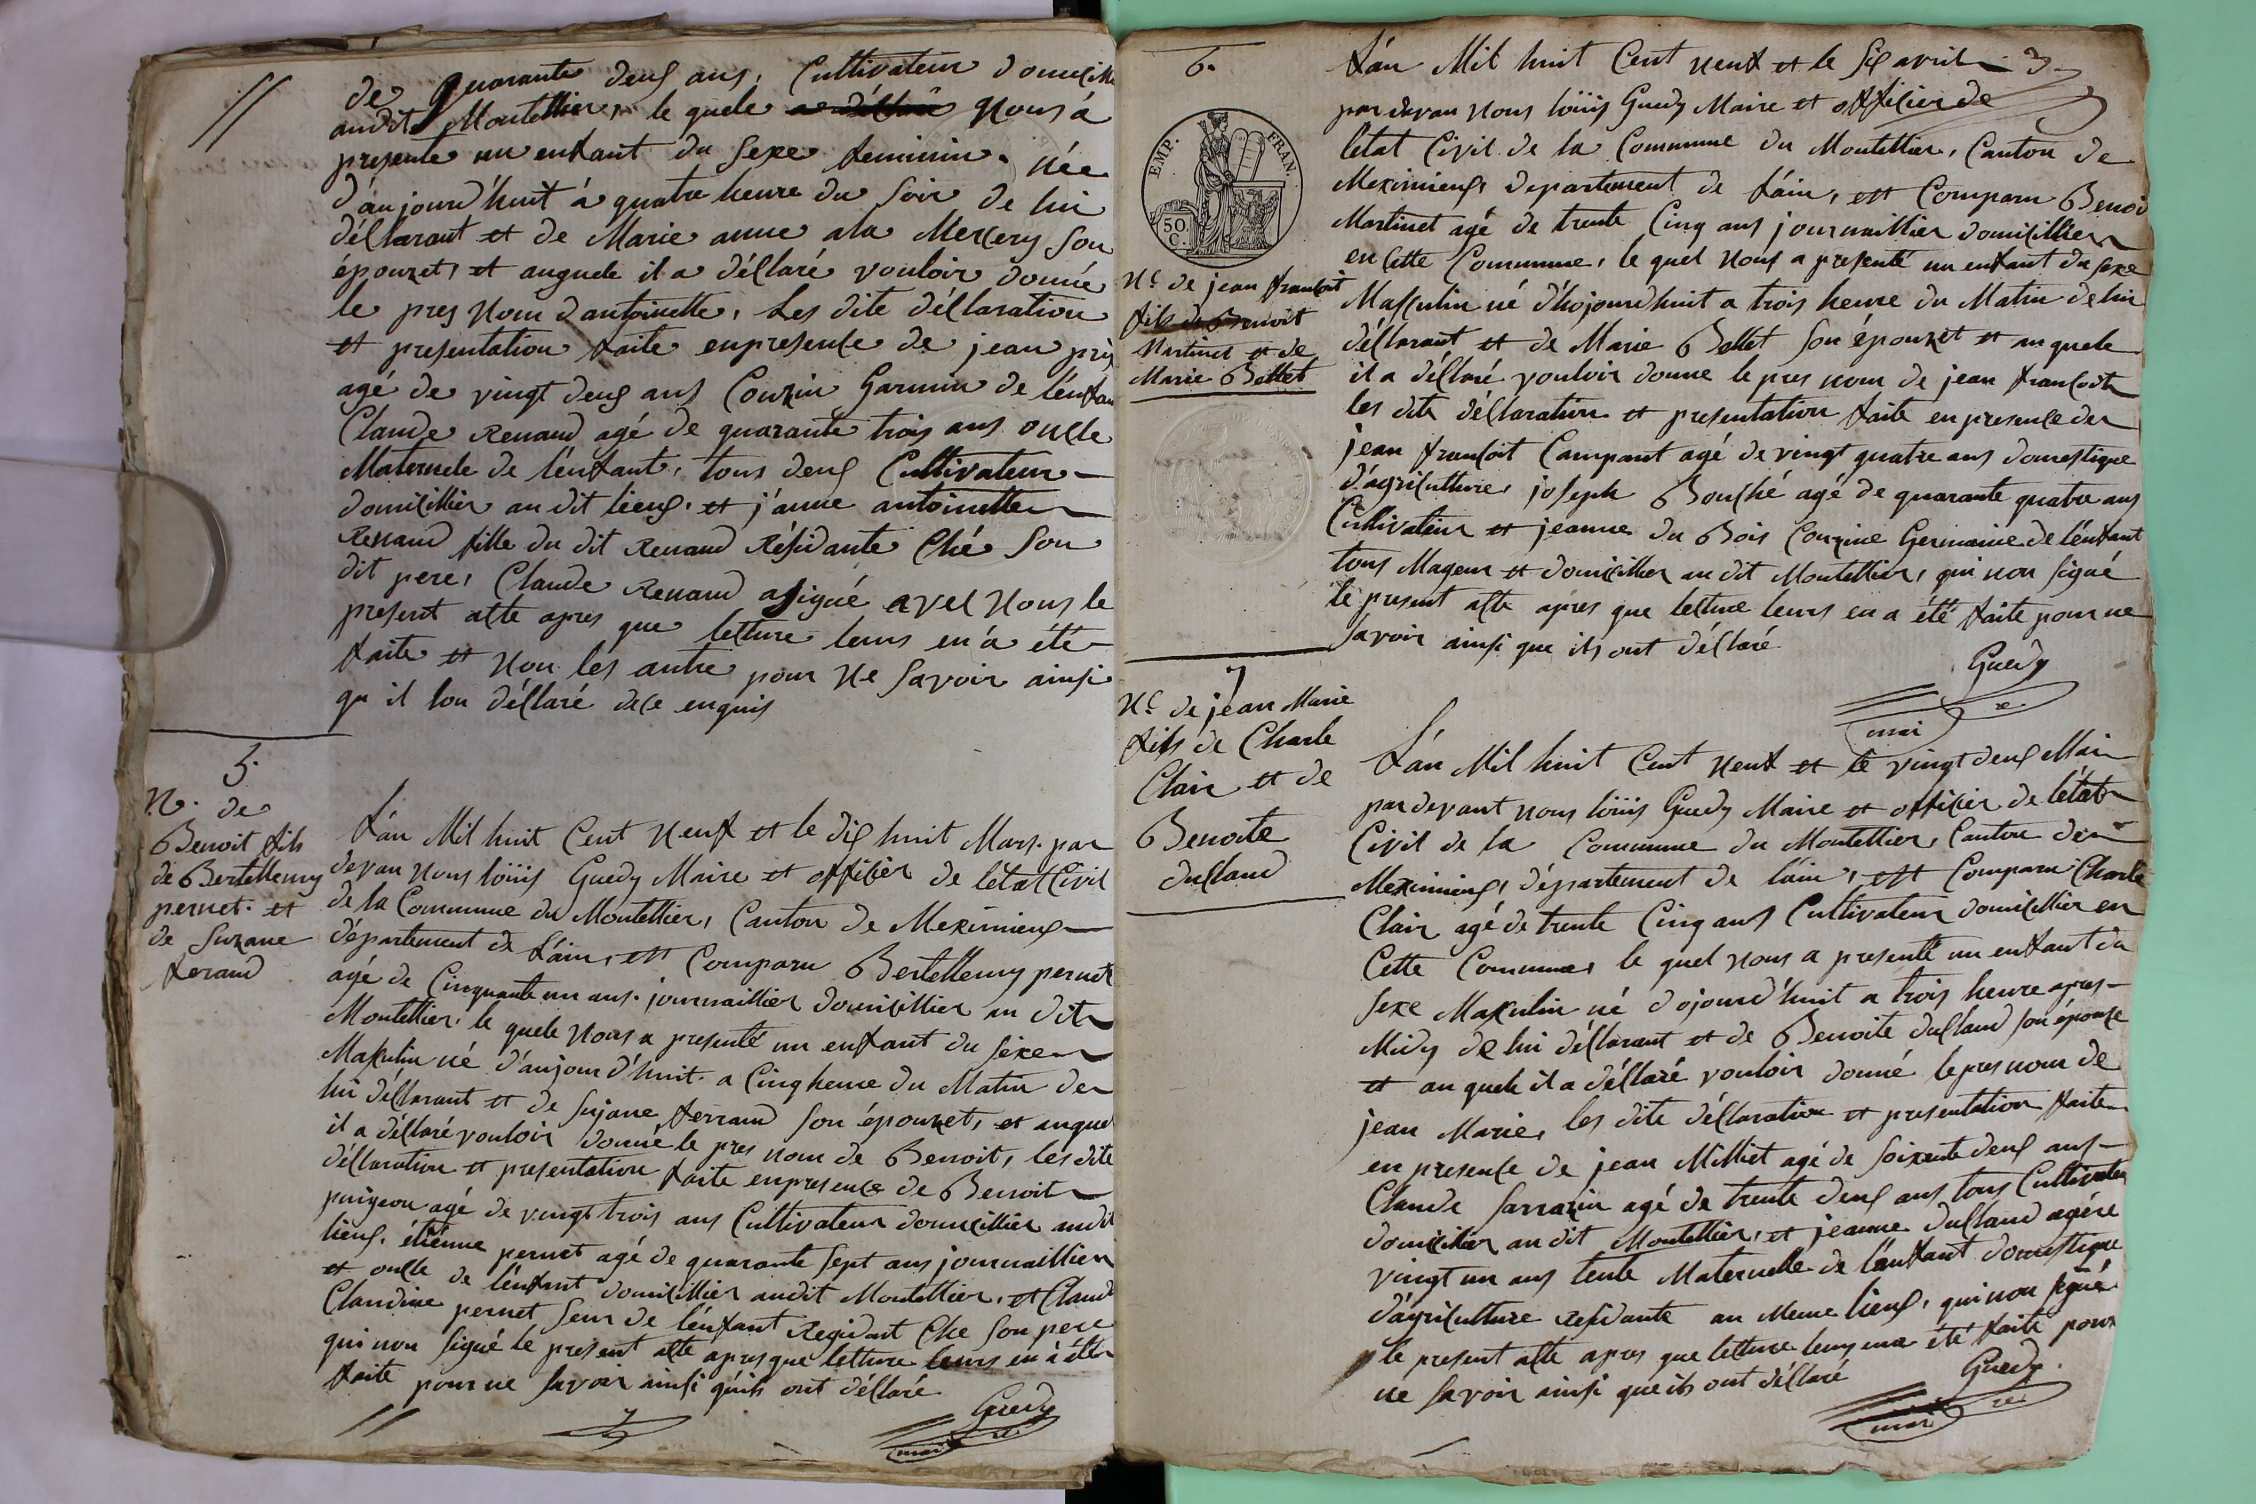 de quarante deux ans, Cultivateur domicillie
audit Montellier, le quele nous á
presente un enfant du sexe feminin, née
d'áujourd'huit á quatre heure du soir de lui
déClarant et de Marie anne ala Mercery son
épouzet, et auquele il a déClaré vouloir donné
le pres nom d'antoinette, Les dite déClaration
et presentation faite enpresence de jean prix
agé de vingt deux ans Couzin Garmin de l'énfan
Claude Renaud agé de quarante trois ans oncle
Maternele de l'énfant, tous deux Cultivateur
domicillier au dit lieux, et j'anne antoinette
Renaud fille du dit Renaud Résidante Ché son
dit pere, Claude Renaud a signé avec nous le
present acte apres que lecture leurs en á été
faite et non les autre pour ne savoir ainsi
qu il lon déClaré dece enquis
5.
N. de
Benoit fils
de Bertellemy
pernet et
de Suzane
feraud
L'án Mil huit Cent neuf et le dix huit Mars par
devan nous loüis Guedy Maire et officier de l'etat Civil
de la Commune du Montellier, Canton de Meximieux
département de l'áin, est Comparu Bertellemy pernet
agé de Cinquante un ans journaillier domicillier au dit
Montellier, le quele nous a presenté un enfant du sexe
Masculin né d'áujourd'huit a Cinq heure du Matin de
lui déClarant et de sujane ferraud son épouzet, et auquel
il a déClaré vouloir donné le pres nom de Benoit, les dite
déClaration et presentation faite enpresence de Benoit
puigeon agé de vingt trois ans Cultivateur domicillier audit
lieux, étiénne pernet agé de quarante sept ans journaillier
et oncle de l'énfant domicillier audit Montellier, et Claud
Claudine pernet seur de l'énfant Regidant Che son pere
qui non signé le present acte apres que lecture leurs en á été
faite pour ne savoir ainsi quils ont déClaré
Guedy
maire
6.
EMP. FRAN.
50 C.
Nce de jean francoit
fils de Benoit
Martinet et de
Marie Bellet
3
L'án Mil huit Cent neuf et le six avril
par devan nous loüis Guedy Maire et officier de
letat Civil de la Commune du Montellier, Canton de
Meximieux département de l'áin, est Comparu Benoi
Martinet agé de trente Cinq ans journaillier domicillier
en Cette Commune, le quel nous a presenté un enfant du sexe
Masculin né d'hojourdhuit a trois heure du Matin de lui
déClarant et de Marie Bellet son épouzet et au quele
il a déClaré vouloir donne le pres nom de jean francoit
les dite déClaration et presentation faite en presence de
jean francoit Campant agé de vingt quatre ans domestique
d'ágriculture, joseph Bouché agé de quarante quatre ans
Cultivateur et jeanne du Bois Couzine Germaine de l'énfant
tous Mageur et domicillier au dit Montellier, qui non signé
le present acte aprés que lecture leurs en a été faite pour ne
savoir ainsi que ils ont déClaré
Guedy
maire
7
Nce de jean Marie
fils de Charle
Clair et de
Benoite
duClaud
L'án Mil huit Cent neuf et le vingt deux Mai
par devant nous loüis Guedy Maire et officier de l'état
Civil de la Commune du Montellier, Canton de
Meximieux, département de l'áin, est Comparu Charle
Clair agé de trente Cinq ans Cultivateur domicillier en
Cette Commune, le quel nous a presenté un enfant du
sexe Masculin né d'ojourd'huit a trois heure apres
Midy de lui déClarant et de Benoite duClaud son épouze
et au quele il a déClaré vouloir donné le pres nom de
jean Marie, les dite déClaration et presentation faite
en presence de jean Milliet agé de soixente deux ans
Claude sarrazin agé de trente deux ans tous Cultivateur
domicilier au dit Montellier, et jeanne duClaud agére
vingt un ans tente Maternelle de l'énfant domestique
d'ágriculture Residante au Meme lieux, qui non signé
le present acte apres que lecture leurs en a été faite pour
ne savoir ainsi que ils ont déClaré
Guedy
maire